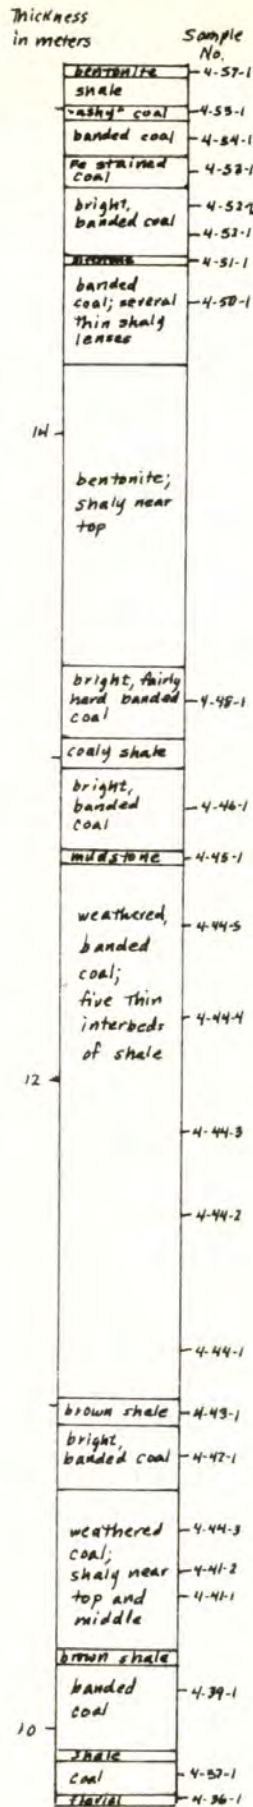 Thickness
in meters
Sample
No.
bentonite
4-57-1
shale
"ashy" coal
4-55-1
banded coal
4-54-1
Fe stained
coal
4-53-1
bright,
banded coal
4-52-2
4-52-1
4-51-1
banded
coal; several
thin shaly
lenses
4-50-1
14
bentonite;
shaly near
top
bright, fairly
hard banded
coal
4-48-1
coaly shale
bright,
banded
coal
4-46-1
mudstone
4-45-1
weathered,
banded
coal;
five thin
interbeds
of shale
4-44-5
4-44-4
12
4-44-3
4-44-2
4-44-1
brown shale
4-43-1
bright,
banded coal
4-42-1
weathered
coal;
shaly near
top and
middle
4-44-3
4-41-2
4-41-1
brown shale
banded
coal
4-39-1
10
shale
coal
4-37-1
4-36-1